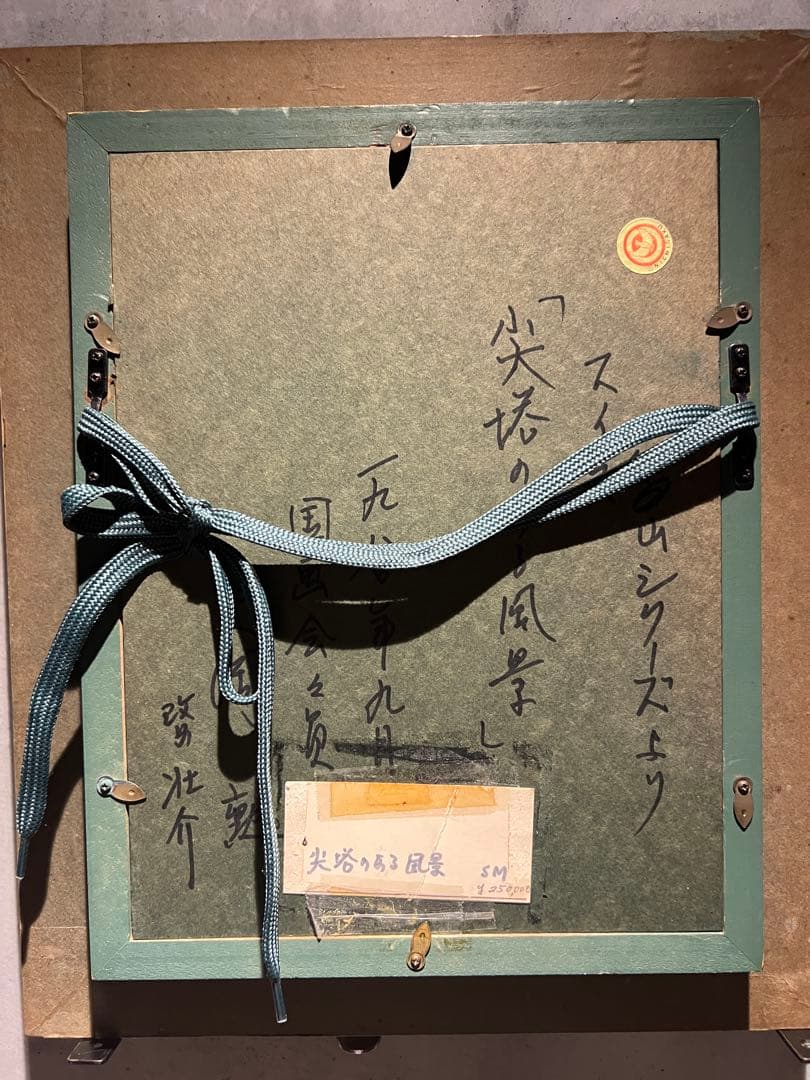 スイ 山シリーズより
「尖塔の る風景」
一九八 年九月
国画会々員
壮介
尖塔のある風景 SM
¥250,000